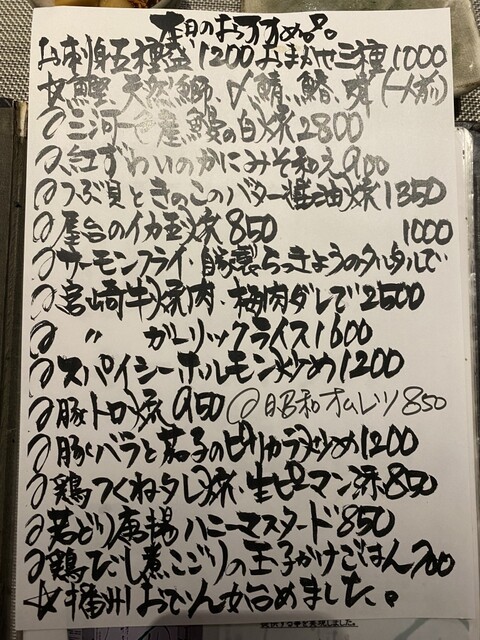 本日のおすすめ品。
お刺身五種盛 1200 おまかせ三種 1000
☆鰹、天然鰤、〆鯖、鰆、蛸 (一人前)
@三河一色産鰻の白焼 2800
@紅ずわいのかにみそ和え 900
@つぶ貝ときのこのバター醤油焼 1350
@屋台のイカ玉焼 850 1000
@サーモンフライ・自家製らっきょうのタルタルで
@宮崎牛焼肉・梅肉ダレで 2500
@ 〃 ガーリックライス 1600
@スパイシーホルモン炒め 1200
@豚トロ焼 950 @昭和オムレツ 850
@豚バラと茄子のピリカラ炒め 1200
@鶏つくねタレ焼・生ピーマン添 850
@若どり唐揚 ハニーマスタード 850
@鶏だし煮こごりの玉子かけごはん 700
☆播州おでん始めました。